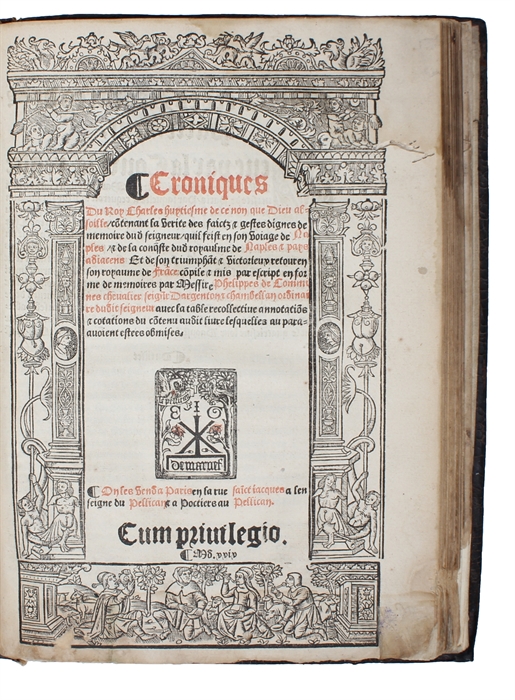 ¶ Croniques
Du Roy Charles huytiesme de ce non que Dieu ab-
soille / cōtenant la verite des faictz ⁊ gestes dignes de
memoire dud̄ seigneur / quil feist en son voiage de Na
ples / ⁊ de la conq̄ste dud̄ royaulme de Naples ⁊ pays
adiacens Et de son triumphāt ⁊ victorieux retour en
son royaume de Frāce cōpile ⁊ mis par escript en for
me de memoires par Messire Phelippes de Commi
nes chevalier seignr̄ Dargenton ⁊ chambellan ordinai
re dudit seigneur avec la table recollective annotatiōs
⁊ cotations du cōtenu audit livre lesquelles au para-
avoient estees obmises.
E I G
de marnef
¶ On les vend a Paris en la rue saīct iacques a len
seigne du Pellican ⁊ a Poctiers au Pellican.
Cum privilegio.